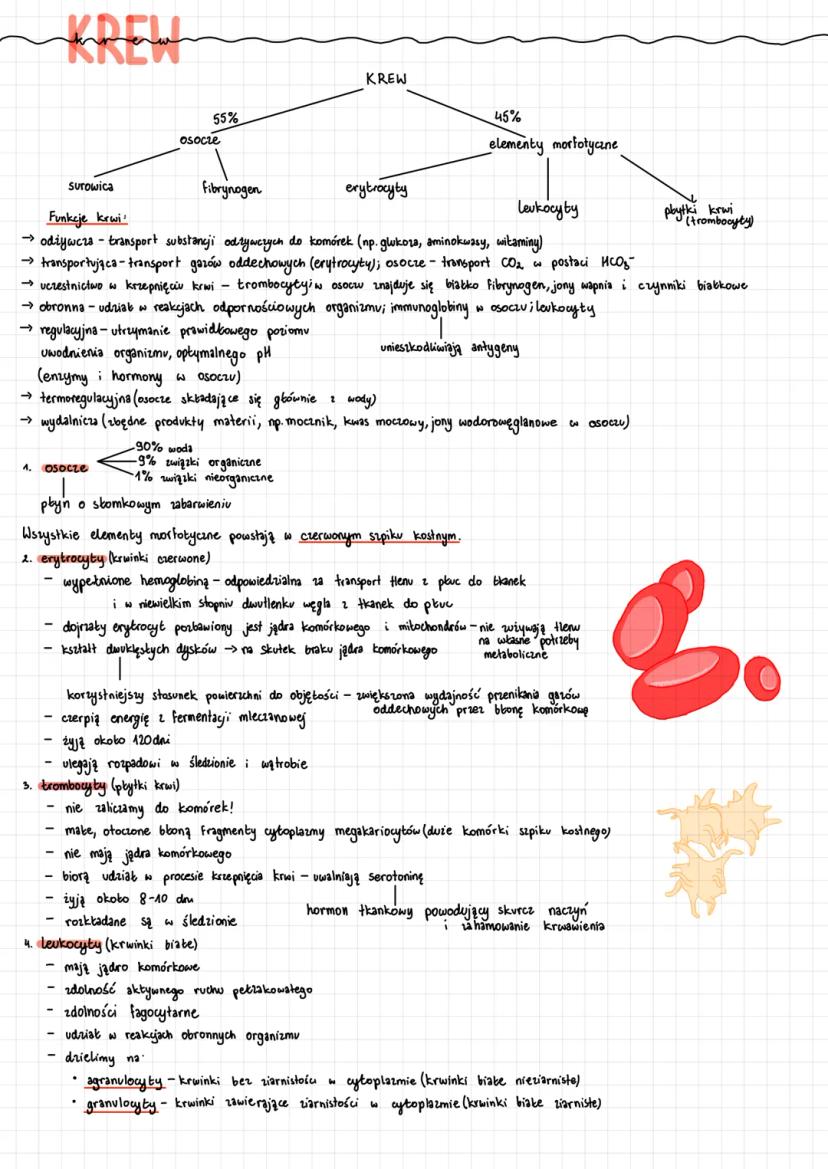 KREW
krew
KREW
55%
45%
osocze
elementy morfotyczne
surowica
fibrynogen
erytrocyty
leukocyty
płytki krwi
(trombocyty)
Funkcje krwi:
→ odżywcza - transport substancji odżywczych do komórek (np. glukoza, aminokwasy, witaminy)
→ transportująca - transport gazów oddechowych (erytrocyty); osocze - transport CO₂ w postaci HCO₃⁻
→ uczestnictwo w krzepnięciu krwi - trombocyty; w osoczu znajduje się białko fibrynogen, jony wapnia i czynniki białkowe
→ obronna - udział w reakcjach odpornościowych organizmu; immunoglobiny w osoczu; leukocyty
unieszkodliwiają antygeny
→ regulacyjna - utrzymanie prawidłowego poziomu
uwodnienia organizmu, optymalnego pH
(enzymy i hormony w osoczu)
→ termoregulacyjna (osocze składające się głównie z wody)
→ wydalnicza (zbędne produkty materii, np. mocznik, kwas moczowy, jony wodorowęglanowe w osoczu)
1. osocze
90% woda
9% związki organiczne
1% związki nieorganiczne
płyn o słomkowym zabarwieniu
Wszystkie elementy morfotyczne powstają w czerwonym szpiku kostnym.
2. erytrocyty (krwinki czerwone)
- wypełnione hemoglobiną - odpowiedzialna za transport tlenu z płuc do tkanek
i w niewielkim stopniu dwutlenku węgla z tkanek do płuc
- dojrzały erytrocyt pozbawiony jest jądra komórkowego i mitochondrów - nie zużywają tlenu
na własne potrzeby
metaboliczne
- kształt dwuklęsłych dysków → na skutek braku jądra komórkowego
korzystniejszy stosunek powierzchni do objętości - zwiększona wydajność przenikania gazów
oddechowych przez błonę komórkową
- czerpią energię z fermentacji mleczanowej
- żyją około 120 dni
- ulegają rozpadowi w śledzionie i wątrobie
3. trombocyty (płytki krwi)
- nie zaliczamy do komórek!
- małe, otoczone błoną fragmenty cytoplazmy megakariocytów (duże komórki szpiku kostnego)
- nie mają jądra komórkowego
- biorą udział w procesie krzepnięcia krwi - uwalniają serotoninę
hormon tkankowy powodujący skurcz naczyń
i zahamowanie krwawienia
- żyją około 8-10 dni
- rozkładane są w śledzionie
4. leukocyty (krwinki białe)
- mają jądro komórkowe
- zdolność aktywnego ruchu pełzakowatego
- zdolności fagocytarne
- udział w reakcjach obronnych organizmu
- dzielimy na:
• agranulocyty - krwinki bez ziarnistości w cytoplazmie (krwinki białe nieziarniste)
• granulocyty - krwinki zawierające ziarnistości w cytoplazmie (krwinki białe ziarniste)